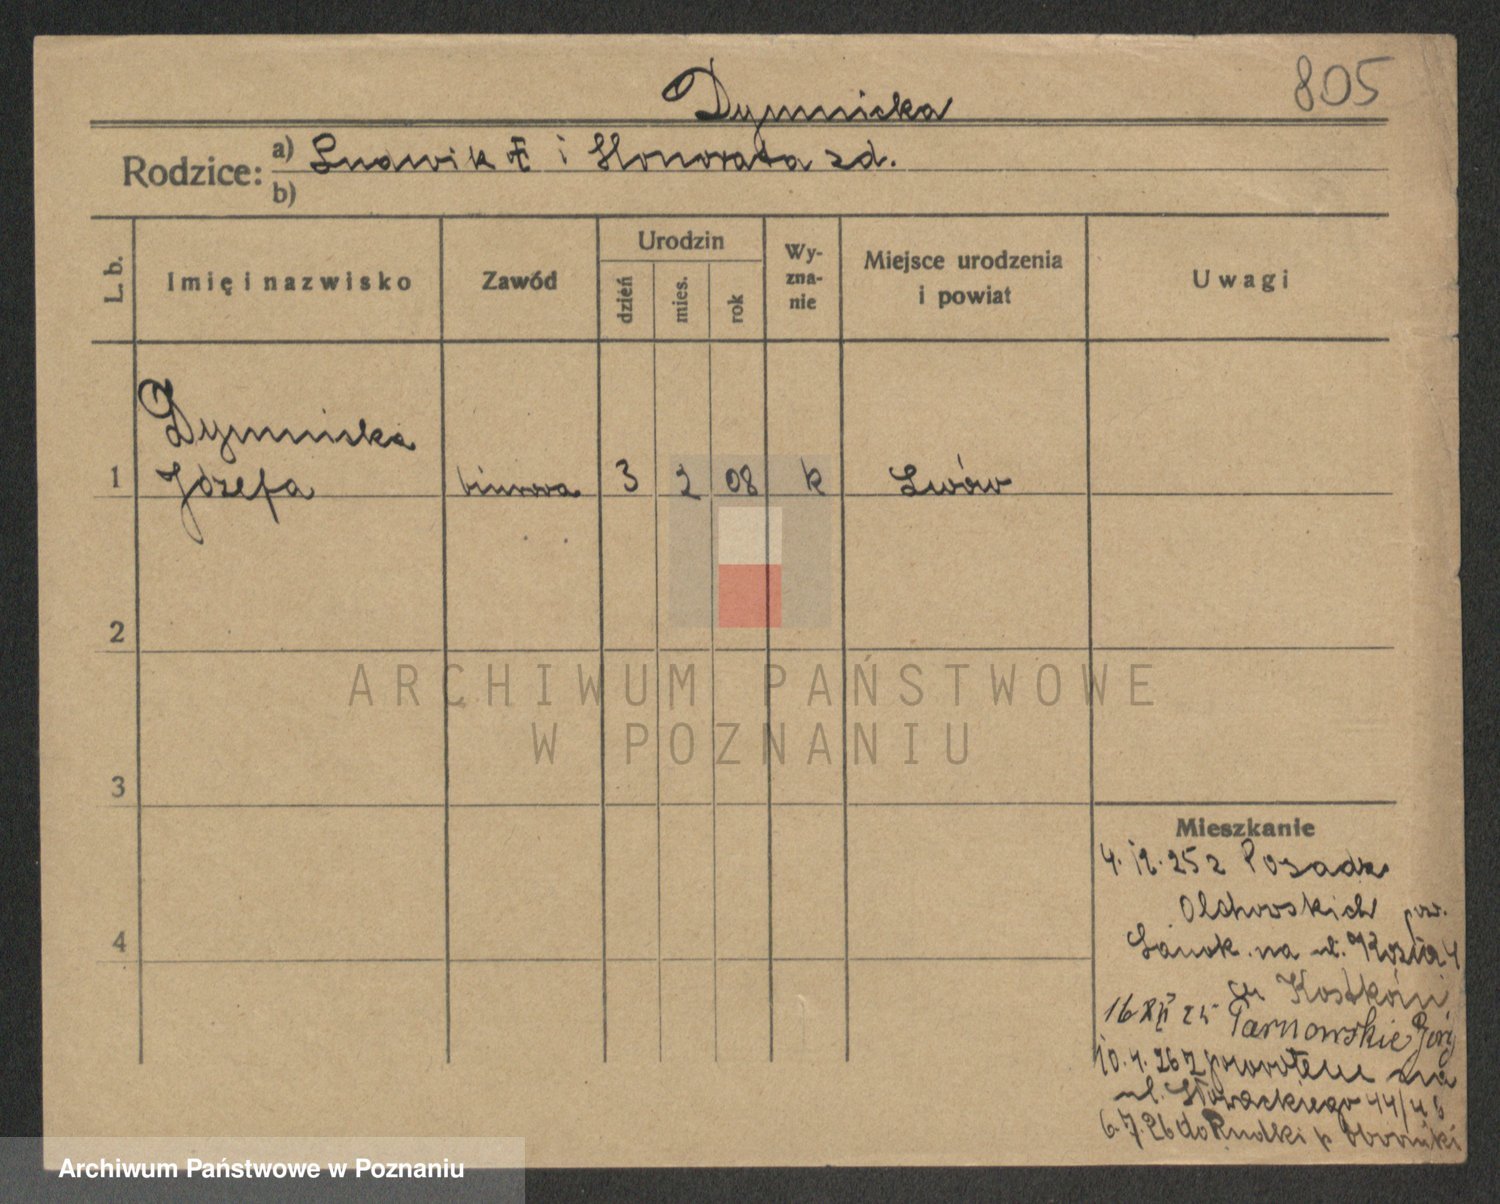 805
Dymnicka
Rodzice: a) Ludwik i Honorata zd.
b)
L. b.
Imię i nazwisko
Zawód
Urodzin
dzień
mies.
rok
Wy-
zna-
nie
Miejsce urodzenia
i powiat
Uwagi
Dymnicka
1 Józefa biurowa 3 2 08 k Lwów
2
3
4
ARCHIWUM PAŃSTWOWE
W POZNANIU
Mieszkanie
4. 12. 25 z Posada
Olchowskich pow.
Sanok na ul.
16 XII 25 Tarnowskie Góry
10. 4. 26 z powrotem na
ul. Słowackiego 44/46
6. 7. 26 do Rudki p Oborniki
Archiwum Państwowe w Poznaniu